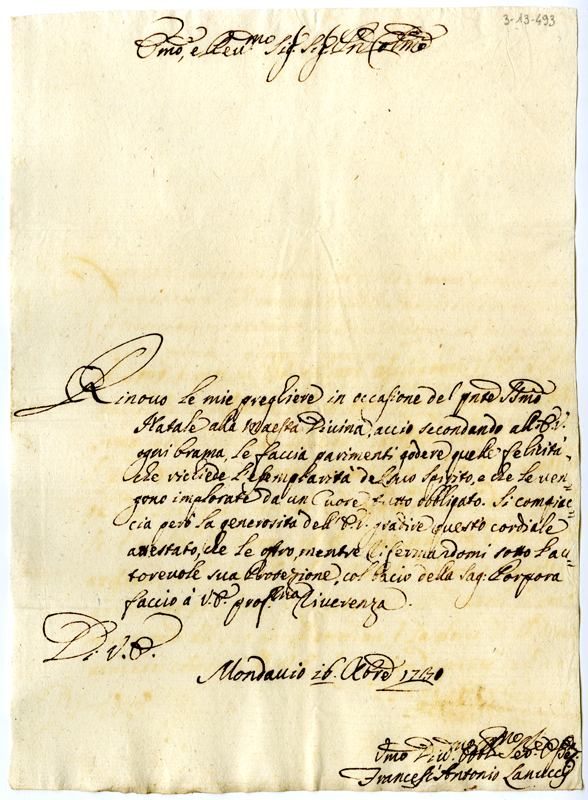 3-13-493
Emo, e Reu.mo Sig. Sig. Pn Colmo
Rinovo le mie preghiere in occasione del pnte SSmo
Natale alla Maestà Divina, acciò secondando all'E.V.
ogni brama, le faccia parimenti godere quelle felicità,
che richiede l'esemplarità del suo spirito, e che le ven-
gono implorate da un Cuore tutto obligato. Si compiac-
cia però la generosità dell'E.V. gradire questo cordiale
attestato, che le offro, mentre rifermandomi sotto l'au-
torevole sua Protezione, col bacio della Sag: Porpora
faccio à V.E. prof.ma riverenza.
Di V.E.
Mondavio 16. Xbre 1730
Umo Div.mo Obl.mo Ser.e
Francesc'Antonio Lanucci